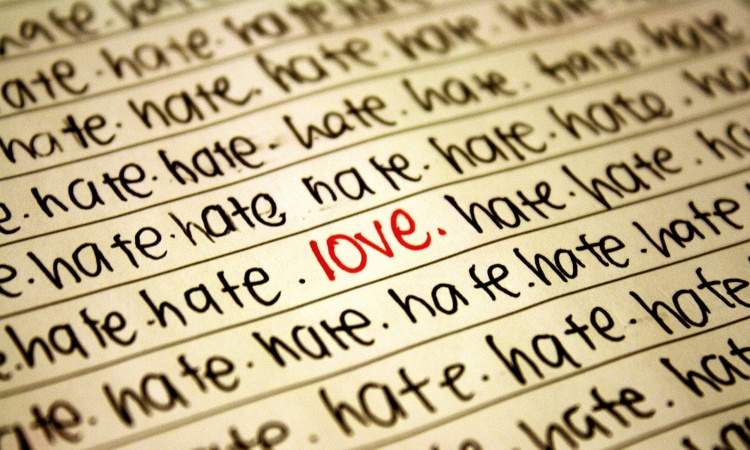 hate. ha
ate. hate hate hate
hate. hate. hate. hate. hate
e. hate. hate. hate. hate. hate. hate
e. hate. hate hate. hate. hate. ha
e. hate. hate. love. hate. hate. ha
ate. hate. hate. hate. hate. hate
ate. hate. hate. hate
hate. hat